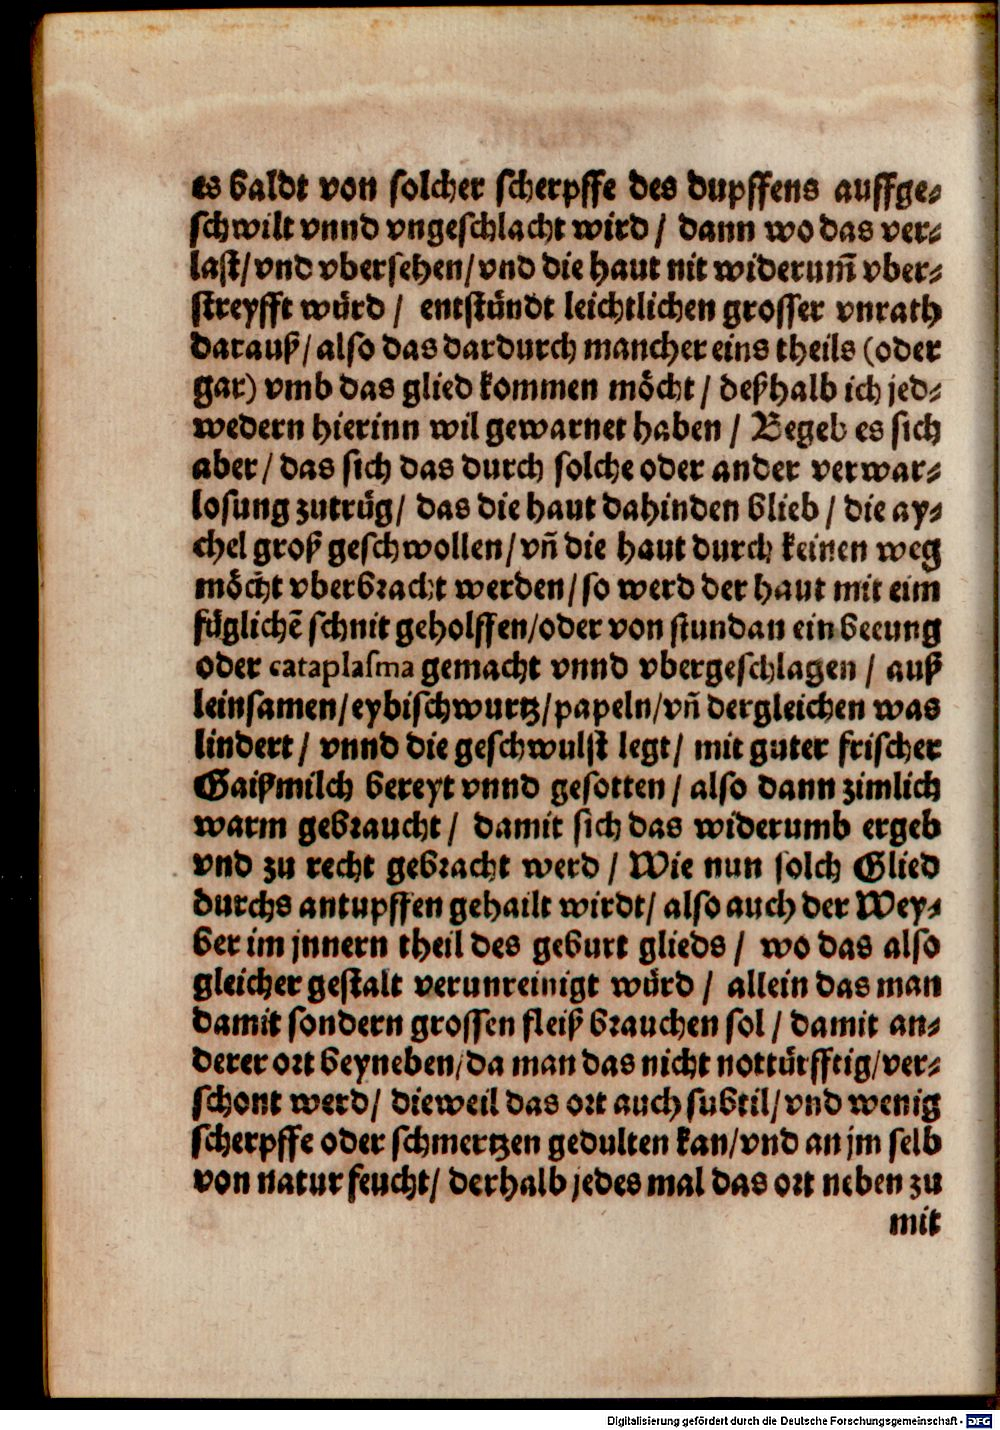 es baldt von solcher scherpffe des dupffens auffge⸗
schwilt vnnd vngeschlacht wird / dann wo das ver⸗
last/vnd vbersehen/vnd die haut nit widerum̃ vber⸗
streyfft wuͤrd / entstuͤndt leichtlichen grosser vnrath
darauß/also das dardurch mancher eins theils (oder
gar) vmb das glied kommen moͤcht / deßhalb ich jed⸗
wedern hierinn wil gewarnet haben / Begeb es sich
aber/das sich das durch solche oder ander verwar⸗
losung zutruͤg/ das die haut dahinden blieb / die ay⸗
chel groß geschwollen/vñ die haut durch keinen weg
moͤcht vberbracht werden/so werd der haut mit eim
fuͤglichẽ schnit geholffen/oder von stundan ein beeung
oder cataplasma gemacht vnnd vbergeschlagen / auß
leinsamen/eybischwurtz/papeln/vñ dergleichen was
lindert / vnnd die geschwulst legt/ mit guter frischer
Gaißmilch bereyt vnnd gesotten / also dann zimlich
warm gebraucht / damit sich das widerumb ergeb
vnd zu recht gebracht werd / Wie nun solch Glied
durchs antupffen gehailt wirdt/ also auch der Wey⸗
ber im jnnern theil des geburt glieds / wo das also
gleicher gestalt verunreinigt wuͤrd / allein das man
damit sondern grossen fleiß brauchen sol / damit an⸗
derer ort beyneben/da man das nicht nottuͤrfftig/ver⸗
schont werd/ dieweil das ort auch subtil/vnd wenig
scherpffe oder schmertzen gedulten kan/vnd an jm selb
von natur feucht/ derhalb jedes mal das ort neben zu
mit
Digitalisierung gefördert durch die Deutsche Forschungsgemeinschaft - DFG